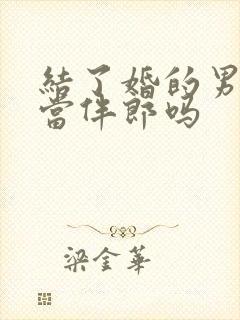 結了婚的男
當伴郎嗎
梁金華